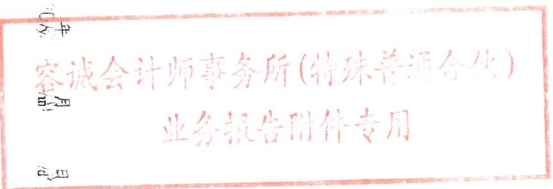 容诚会计师事务所(特殊普通合伙)
业务报告附件专用
年
月
日